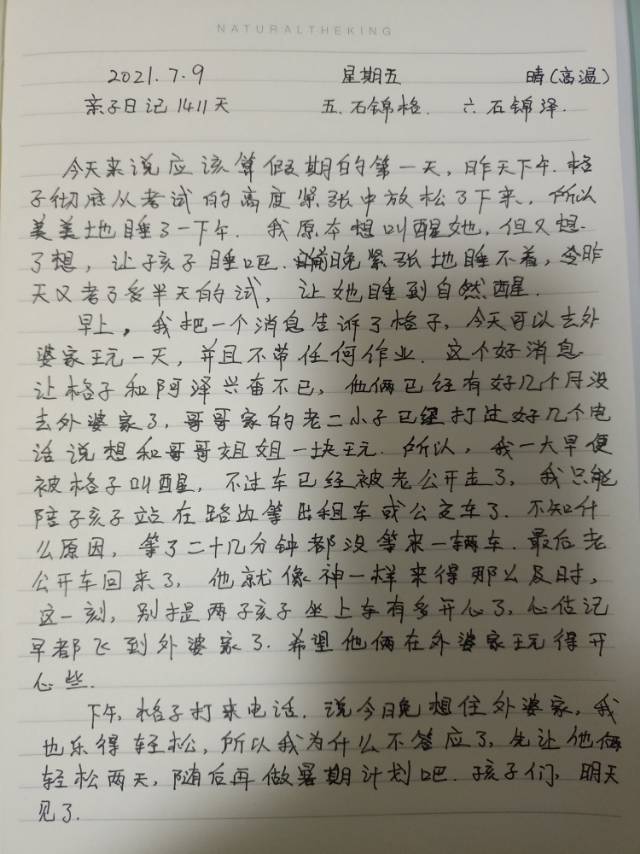 NATURALTHEKING
2021.7.9 星期五 晴(高温)
亲子日记1411天 五.石锦格. 六.石锦泽.
今天来说应该算假期的第一天,昨天下午.格
子彻底从考试的高度紧张中放松了下来,所以
美美地睡了一下午.我原本想叫醒她,但又想
了想,让孩子睡吧.前晚紧张地睡不着,昨
天又考了多半天的试,让她睡到自然醒.
早上,我把一个消息告诉了格子,今天可以去外
婆家玩一天,并且不带任何作业.这个好消息
让格子和阿泽兴奋不已,他俩已经有好几个月没
去外婆家了,哥哥家的老二小子已经打过好几个电
话说想和哥哥姐姐一块玩.所以,我一大早便
被格子叫醒,不过车已经被老公开走了,我只能
陪子孩子站在路边等出租车或公交车了.不知什
么原因,等了二十几分钟都没等来一辆车.最后老
公开车回来了,他就像神一样来得那么及时,
这一刻,别提两子孩子坐上车有多开心了,心估记
早都飞到外婆家了.希望他俩在外婆家玩得开
心些.
下午,格子打来电话.说今日晚想住外婆家,我
也乐得轻松,所以我为什么不答应了,先让他俩
轻松两天,随后再做暑期计划吧.孩子们,明天
见了.